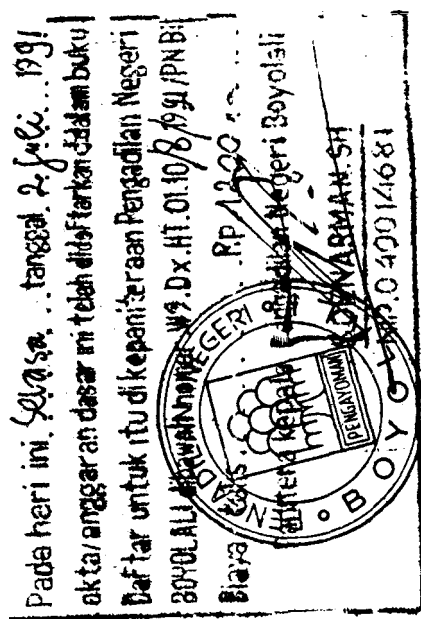 Pada hari ini, Selasa... tanggal. 2 Juli... 1991
akta/anggaran dasar ini telah didaftarkan didalam buku
Daftar untuk itu di kepaniteraan Pengadilan Negeri
BOYOLALI dibawah nomor W9.Dx.HT.01.10/8/1991/PN Bi
Biaya Rp
Panitera Kepala Pengadilan Negeri Boyolali
NEGERI
PENGAYOMAN
BOYOL
NARMAN. SH
040014681